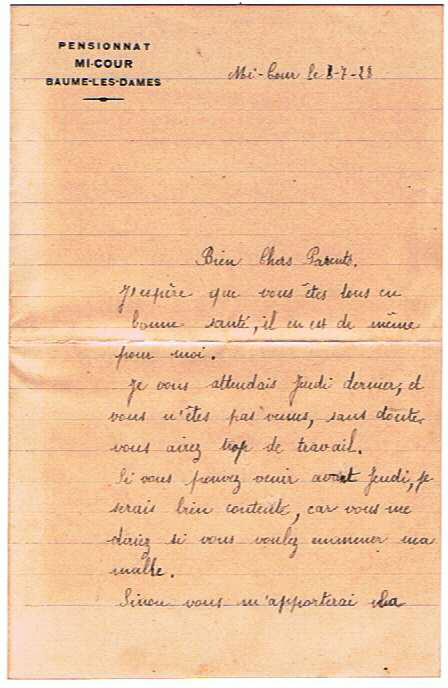 PENSIONNAT
MI-COUR
BAUME-LES-DAMES
Mi-Cour le 8-7-28
Bien Chers Parents.
J'espère que vous êtes tous en
bonne santé, il en est de même
pour moi.
Je vous attendais Jeudi dernier, et
vous n'êtes pas venus, sans doute
vous airez trop de travail.
Si vous pouvez venir avant Jeudi, je
serais bien contente, car vous me
direz si vous voulez emmener ma
malle.
Sinon vous m'apporterai la